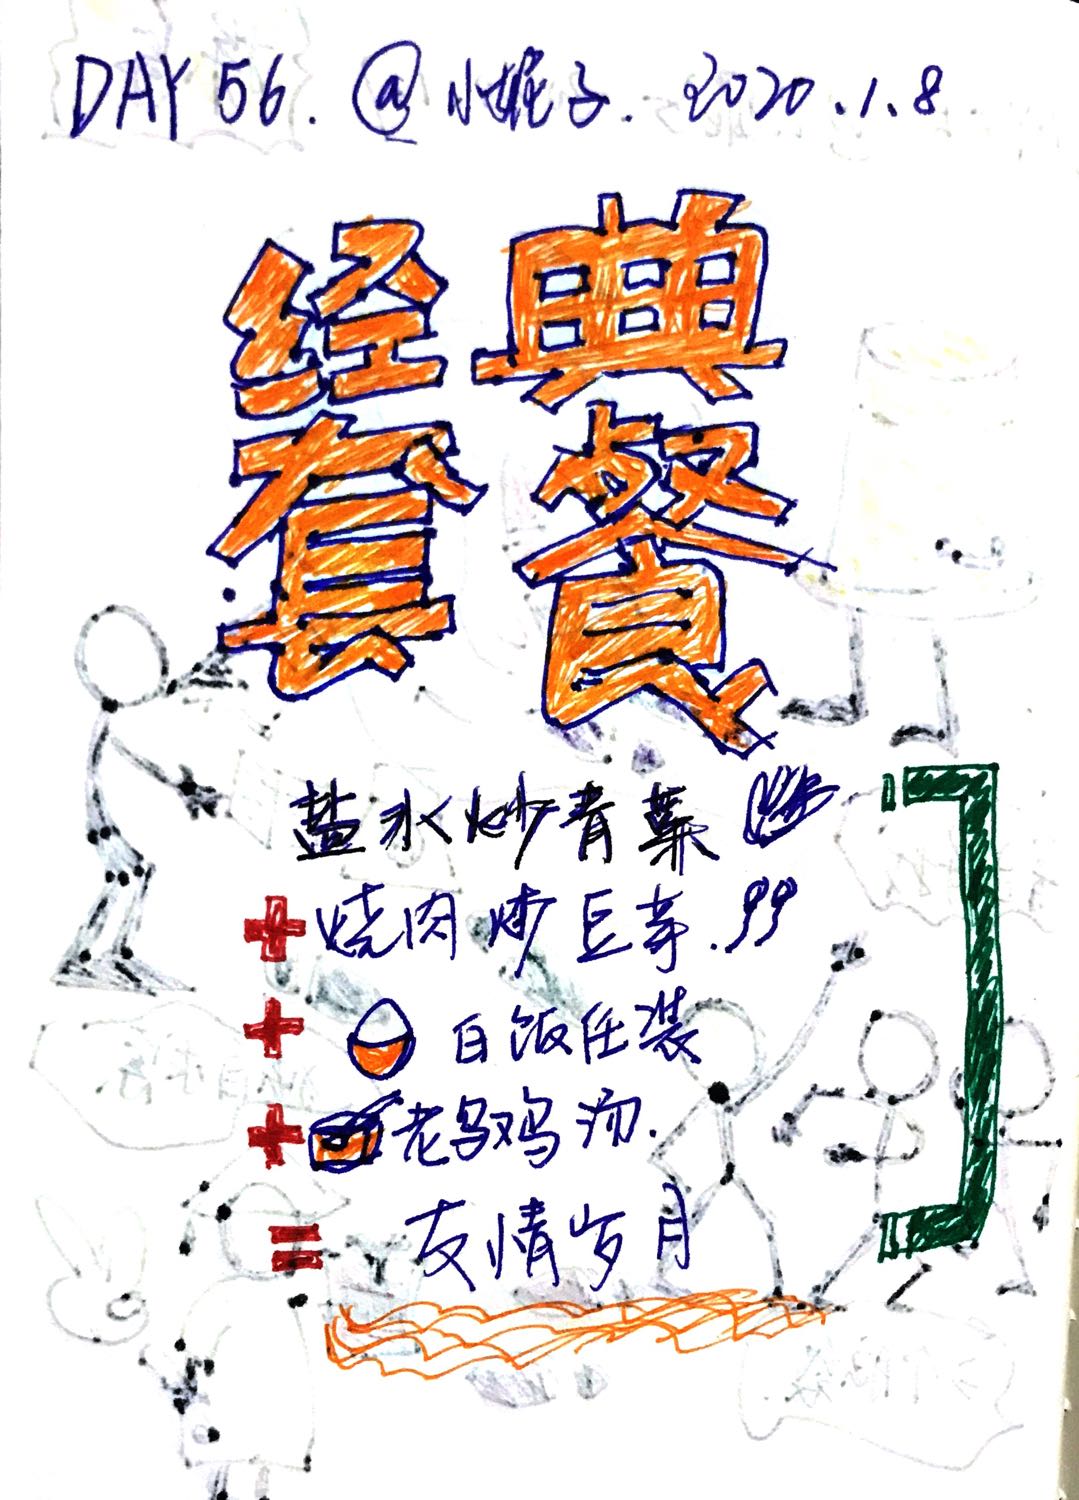 DAY 56. @小堀子. 2020.1.8
经典
套餐
盐水炒青菜
+ 烧肉炒豆芽.
+ 白饭任装
+ 老母鸡汤.
= 友情岁月